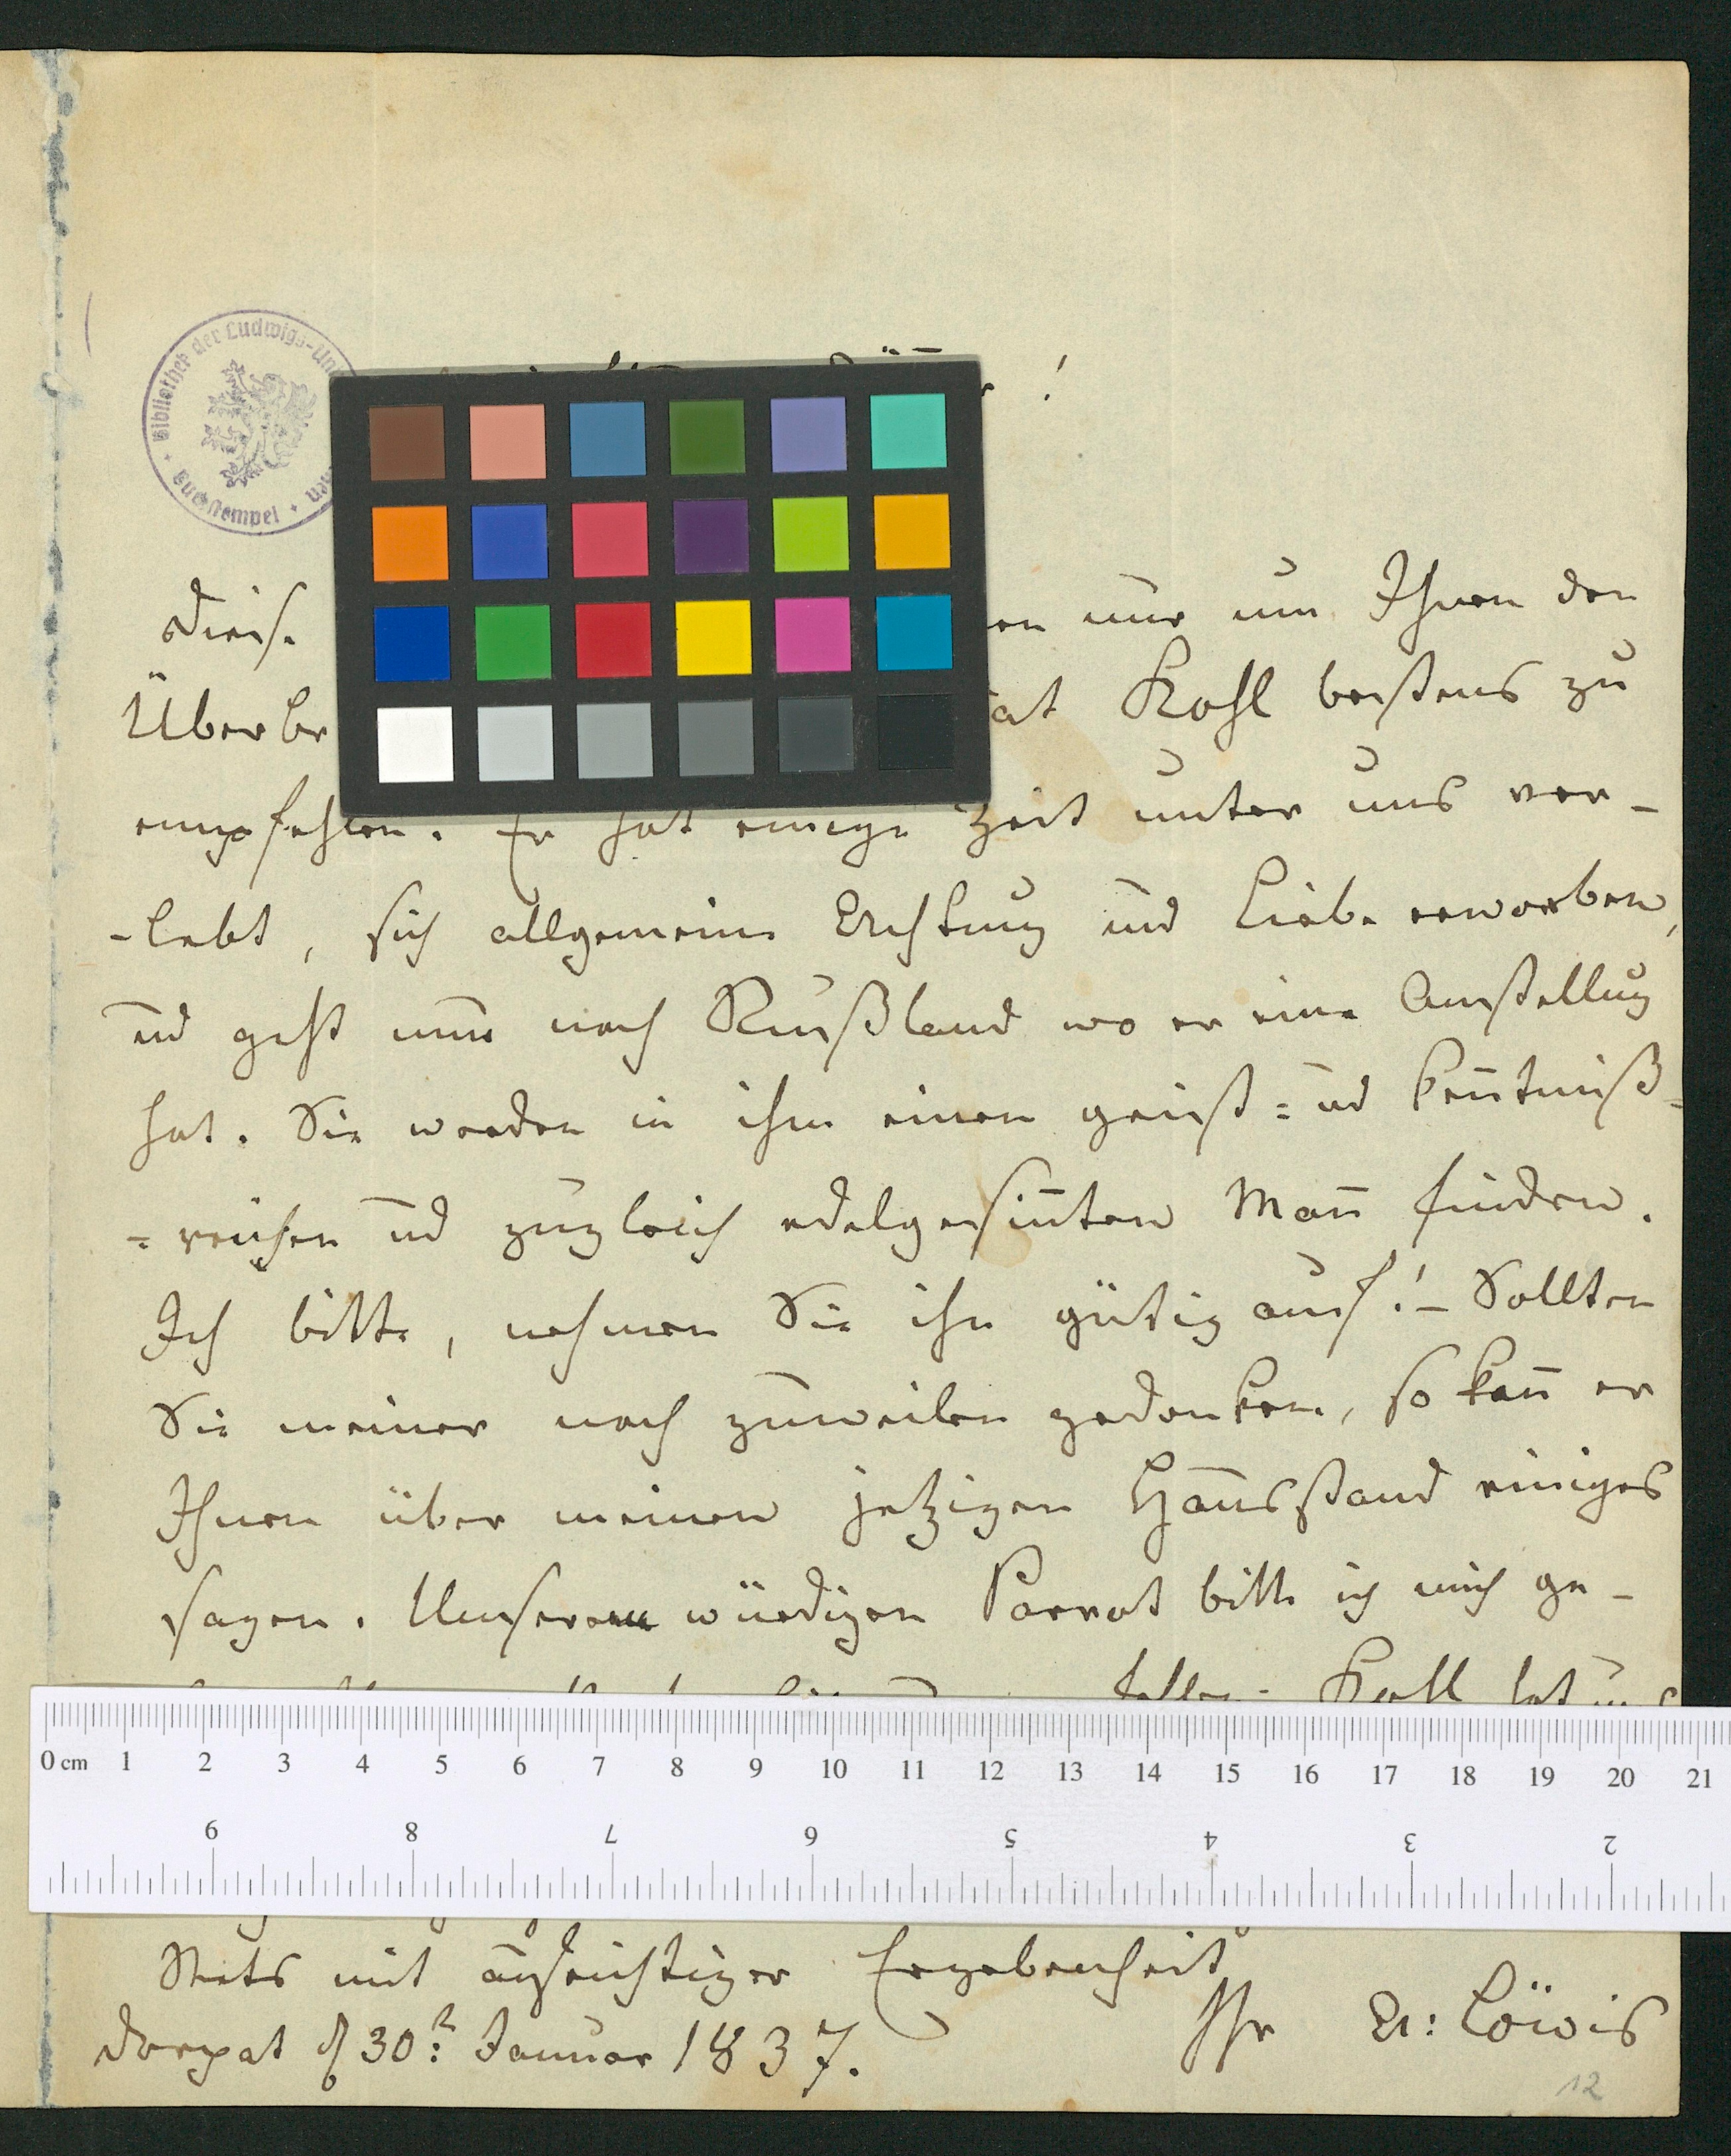 Bibliothek der Ludwigs-Uni
Buchstempel
!
Diese
en nur um Ihnen den
Überbr
at Kohl bestens zu
empfehlen. Er hat einige Zeit unter uns ver-
-lebt, sich allgemeine Achtung und Liebe erworben,
ūd geht nun nach Rußland wo er eine Anstellug
hat. Sie werden in ihm einen geist= ūd keñtniß=
=reichen ūd zugleich edelgesiñten Mañ finden.
Ich bitte, nehmen Sie ihn gütig auf! – Sollten
Sie meiner noch zuweilen gedenken, so kañ er
Ihnen über meinen jetzigen Hausstand einiges
sagen. Unserem würdigen Parrot bitte ich mich ge-
Kohl hat
0 cm 1 2 3 4 5 6 7 8 9 10 11 12 13 14 15 16 17 18 19 20 21
9 8 7 6 5 4 3 2
Stets mit aufrichtiger Ergebenheit
Ihr A: Löwis
Dorpat d 30: Januar 1837.
12